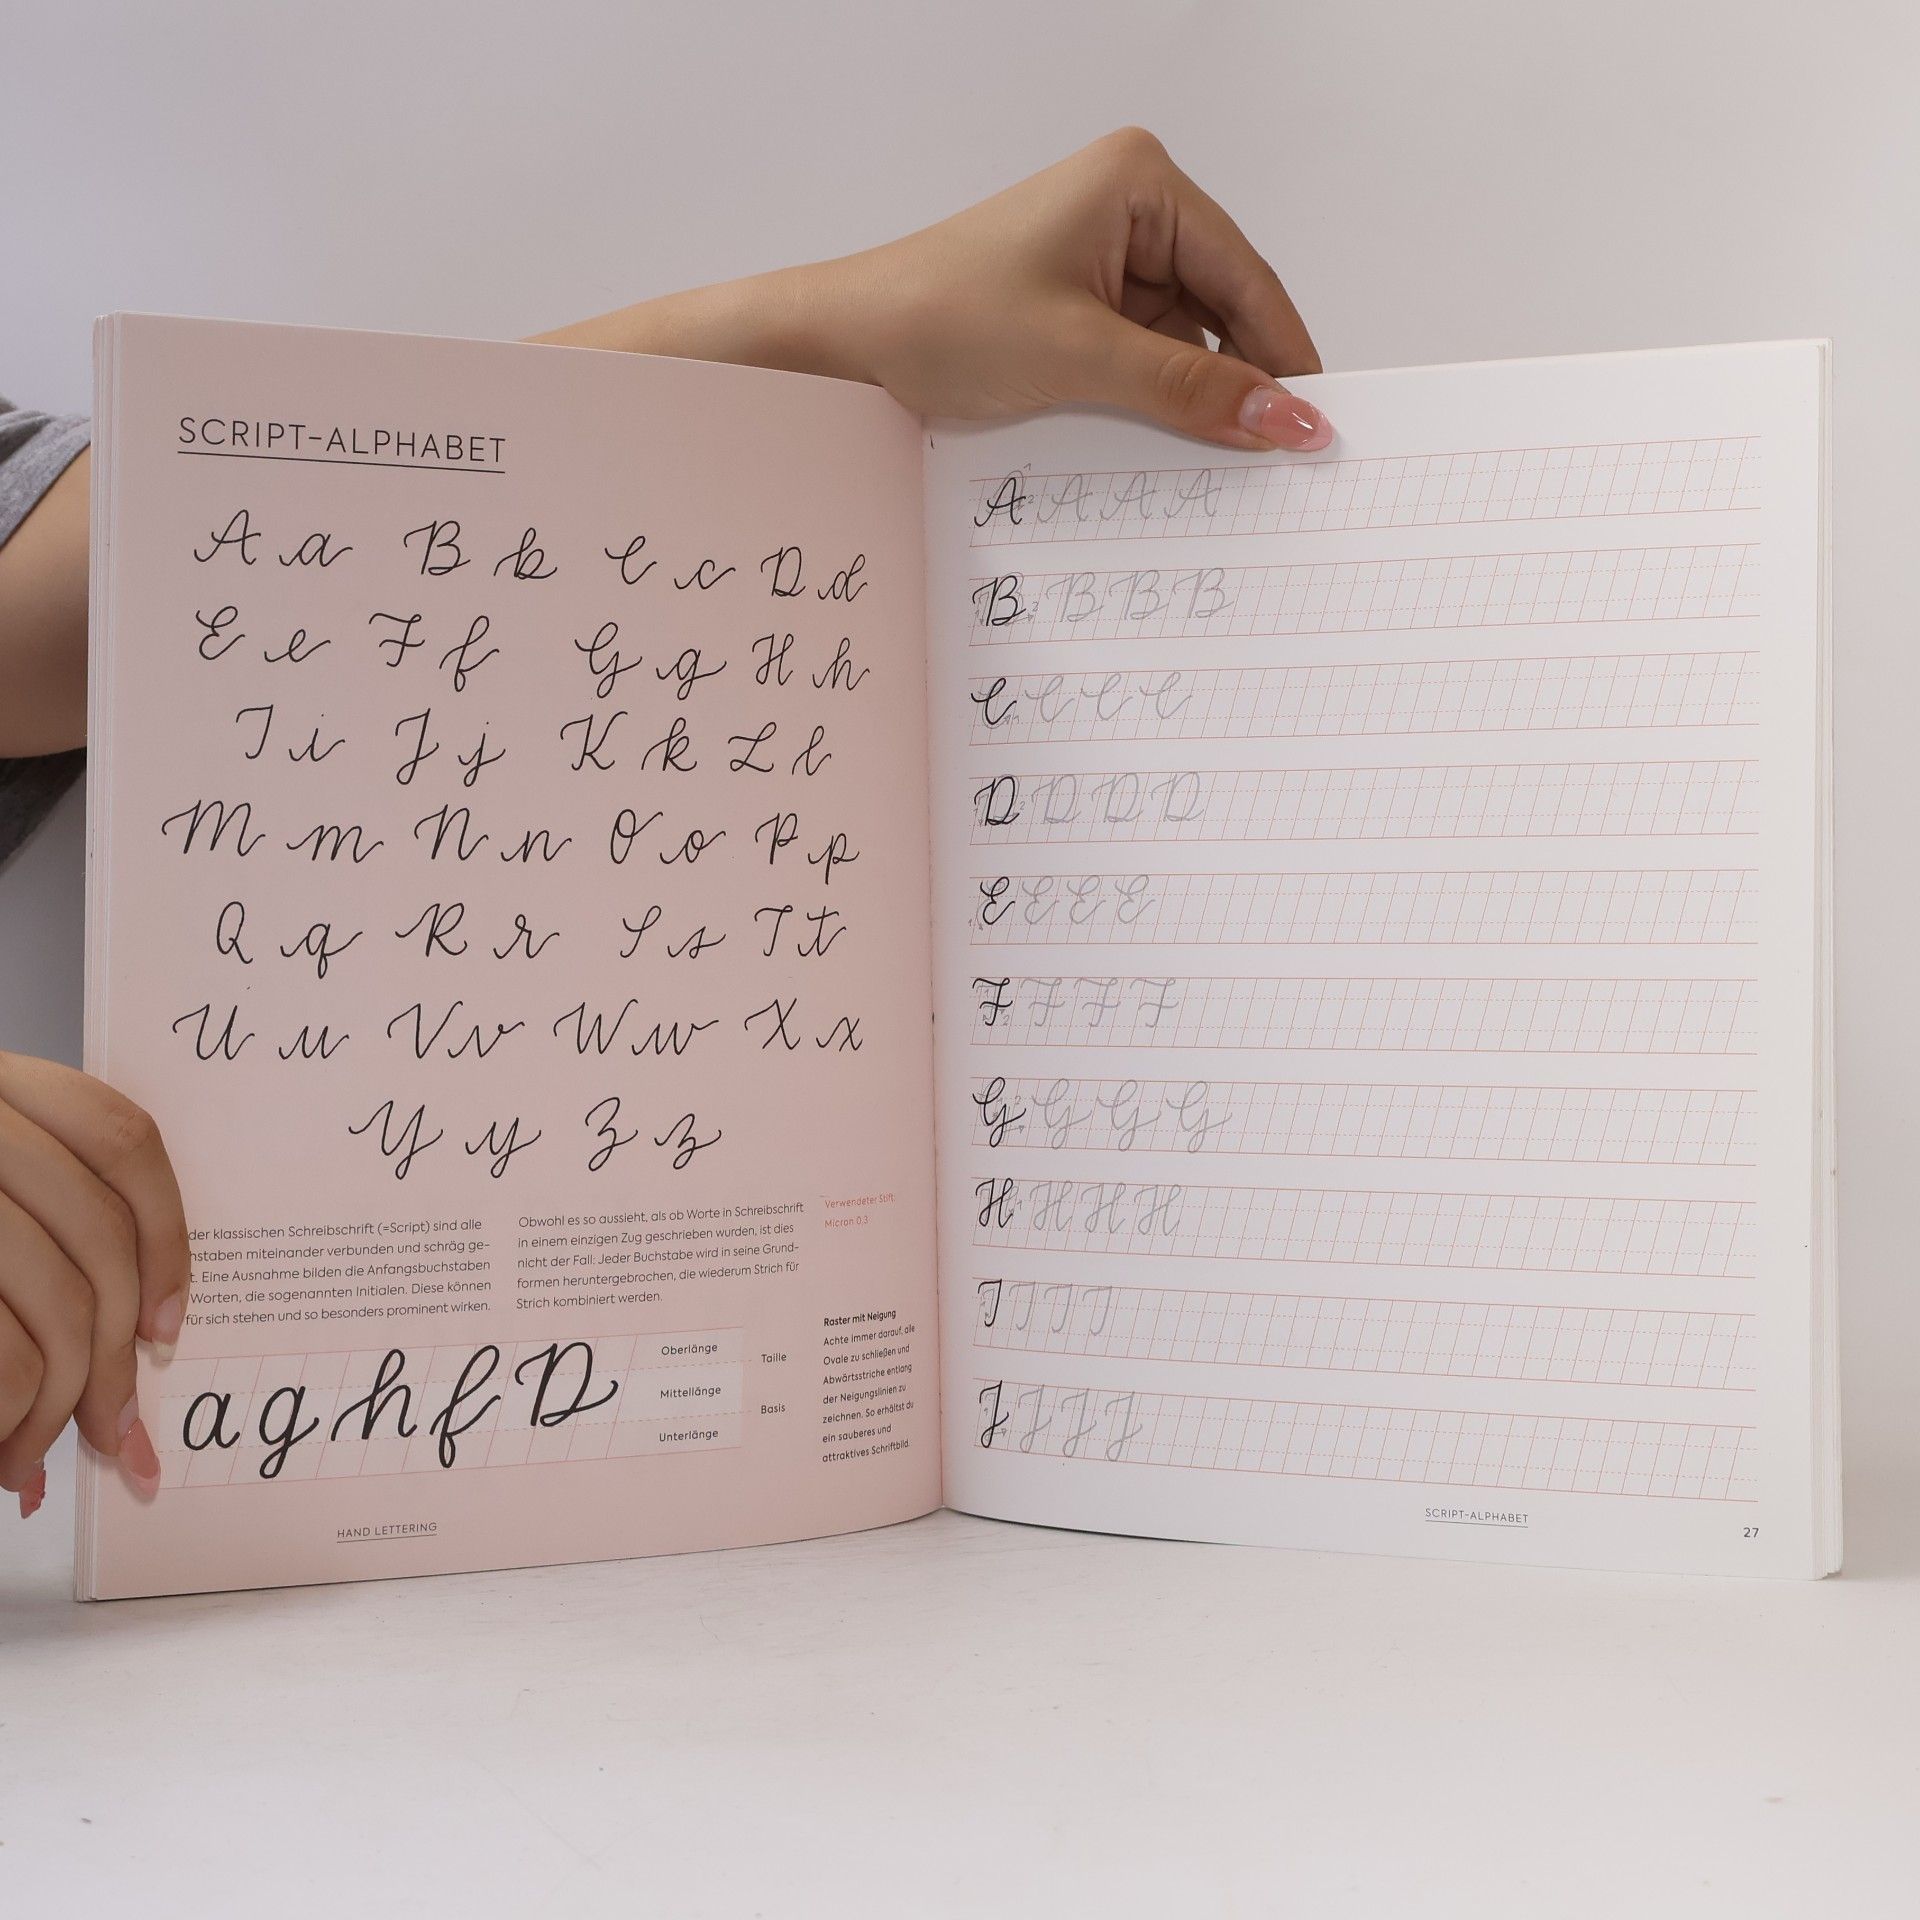 SCRIPT-ALPHABET
A a B b C c D d
E e F f G g H h
I i J j K k L l
M m N n O o P p
Q q R r S s T t
U u V v W w X x
Y y Z z
der klassischen Schreibschrift (=Script) sind alle
miteinander verbunden und schräg ge-
Eine Ausnahme bilden die Anfangsbuchstaben
Worten, die sogenannten Initialen. Diese können
für sich stehen und so besonders prominent wirken.
Obwohl es so aussieht, als ob Worte in Schreibschrift
in einem einzigen Zug geschrieben wurden, ist dies
nicht der Fall: Jeder Buchstabe wird in seine Grund-
formen heruntergebrochen, die wiederum Strich für
Strich kombiniert werden.
Verwendeter Stift:
Micron 0,3
a g h f D
Oberlänge
Mittellänge
Unterlänge
Taille
Basis
Raster mit Neigung
Achte immer darauf, alle
Ovale zu schließen und
Abwärtsstriche entlang
der Neigungslinien zu
zeichnen. So erhältst du
ein sauberes und
attraktives Schriftbild.
HAND LETTERING
A A A A
B B B B
C C C C
D D D D
E E E E
F F F F
G G G G
H H H H
I I I I
J J J J
SCRIPT-ALPHABET
27